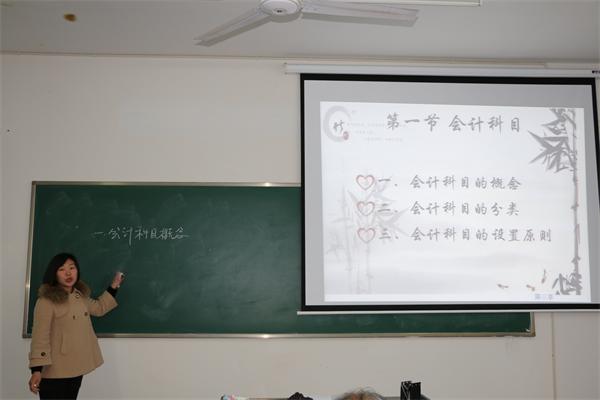 一.会计科目概念
第一节 会计科目
竹
一、会计科目的概念
二、会计科目的分类
三、会计科目的设置原则